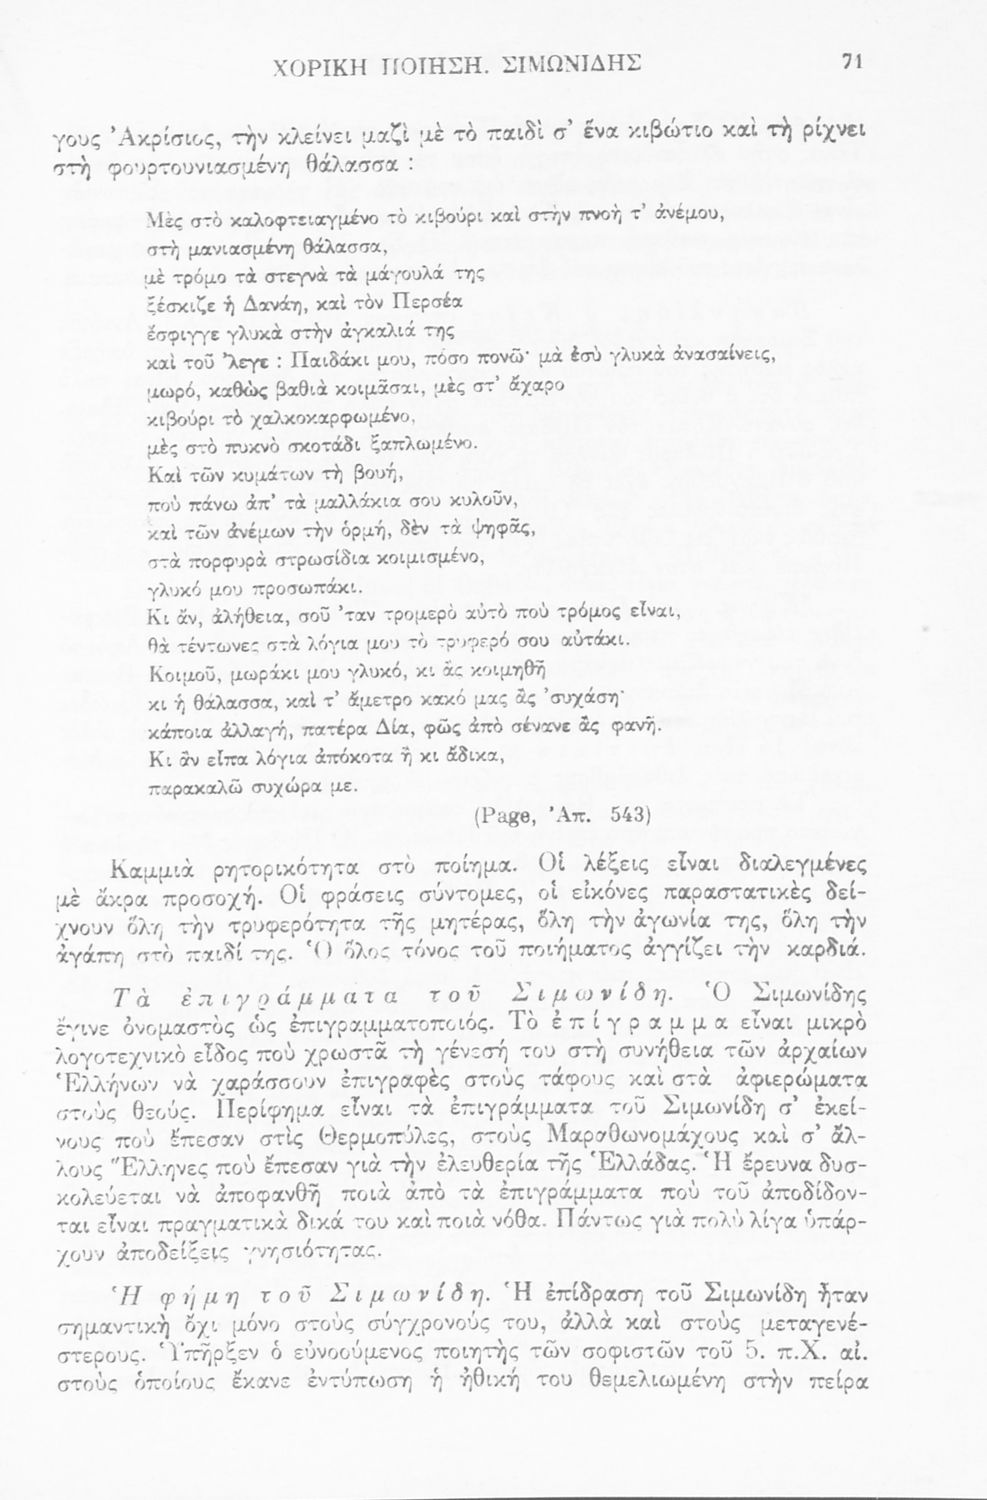 ΧΟΡΙΚΗ ΠΟΙΗΣΗ. ΣΙΜΩΝΙΔΗΣ 71
γους Ἀκρίσιος, τὴν κλείνει μαζὶ μὲ τὸ παιδὶ σ’ ἕνα κιβώτιο καὶ τὴ ρίχνει
στὴ φουρτουνιασμένη θάλασσα :
Μὲς στὸ καλοφτειαγμένο τὸ κιβούρι καὶ στὴν πνοὴ τ’ ἀνέμου,
στὴ μανιασμένη θάλασσα,
μὲ τρόμο τὰ στεγνὰ τὰ μάγουλά της
ξέσκιζε ἡ Δανάη, καὶ τὸν Περσέα
ἔσφιγγε γλυκὰ στὴν ἀγκαλιά της
καὶ τοῦ ’λεγε : Παιδάκι μου, πόσο πονῶ· μὰ ἐσὺ γλυκὰ ἀνασαίνεις,
μωρό, καθὼς βαθιὰ κοιμᾶσαι, μὲς στ’ ἄχαρο
κιβούρι τὸ χαλκοκαρφωμένο,
μὲς στὸ πυκνὸ σκοτάδι ξαπλωμένο.
Καὶ τῶν κυμάτων τὴ βουή,
ποὺ πάνω ἀπ’ τὰ μαλλάκια σου κυλοῦν,
καὶ τῶν ἀνέμων τὴν ὁρμή, δὲν τὰ ψηφᾶς,
στὰ πορφυρὰ στρωσίδια κοιμισμένο,
γλυκό μου προσωπάκι.
Κι ἄν, ἀλήθεια, σοῦ ’ταν τρομερὸ αὐτὸ ποὺ τρόμος εἶναι,
θὰ τέντωνες στὰ λόγια μου τὸ τρυφερό σου αὐτάκι.
Κοιμοῦ, μωράκι μου γλυκό, κι ἂς κοιμηθῆ
κι ἡ θάλασσα, καὶ τ’ ἄμετρο κακό μας ἂς ’συχάση·
κάποια ἀλλαγή, πατέρα Δία, φῶς ἀπὸ σένανε ἂς φανῆ.
Κι ἂν εἶπα λόγια ἀπόκοτα ἢ κι ἄδικα,
παρακαλῶ συχώρα με.
(Page, Ἀπ. 543)
Καμμιὰ ρητορικότητα στὸ ποίημα. Οἱ λέξεις εἶναι διαλεγμένες
μὲ ἄκρα προσοχή. Οἱ φράσεις σύντομες, οἱ εἰκόνες παραστατικὲς δεί-
χνουν ὅλη τὴν τρυφερότητα τῆς μητέρας, ὅλη τὴν ἀγωνία της, ὅλη τὴν
ἀγάπη στὸ παιδί της. Ὁ ὅλος τόνος τοῦ ποιήματος ἀγγίζει τὴν καρδιά.
Τὰ ἐπιγράμματα τοῦ Σιμωνίδη. Ὁ Σιμωνίδης
ἔγινε ὀνομαστὸς ὡς ἐπιγραμματοποιός. Τὸ ἐπίγραμμα εἶναι μικρὸ
λογοτεχνικὸ εἶδος ποὺ χρωστᾶ τὴ γένεσή του στὴ συνήθεια τῶν ἀρχαίων
Ἑλλήνων νὰ χαράσσουν ἐπιγραφὲς στοὺς τάφους καὶ στὰ ἀφιερώματα
στοὺς θεούς. Περίφημα εἶναι τὰ ἐπιγράμματα τοῦ Σιμωνίδη σ’ ἐκεί-
νους ποὺ ἔπεσαν στὶς Θερμοπύλες, στοὺς Μαραθωνομάχους καὶ σ’ ἄλ-
λους Ἕλληνες ποὺ ἔπεσαν γιὰ τὴν ἐλευθερία τῆς Ἑλλάδας. Ἡ ἔρευνα δυσ-
κολεύεται νὰ ἀποφανθῆ ποιὰ ἀπὸ τὰ ἐπιγράμματα ποὺ τοῦ ἀποδίδον-
ται εἶναι πραγματικὰ δικά του καὶ ποιὰ νόθα. Πάντως γιὰ πολὺ λίγα ὑπάρ-
χουν ἀποδείξεις γνησιότητας.
Ἡ φήμη τοῦ Σιμωνίδη. Ἡ ἐπίδραση τοῦ Σιμωνίδη ἦταν
σημαντικὴ ὄχι μόνο στοὺς σύγχρονούς του, ἀλλὰ καὶ στοὺς μεταγενέ-
στερους. Ὑπῆρξεν ὁ εὐνοούμενος ποιητὴς τῶν σοφιστῶν τοῦ 5. π.Χ. αἰ.
στοὺς ὁποίους ἔκανε ἐντύπωση ἡ ἠθική του θεμελιωμένη στὴν πείρα